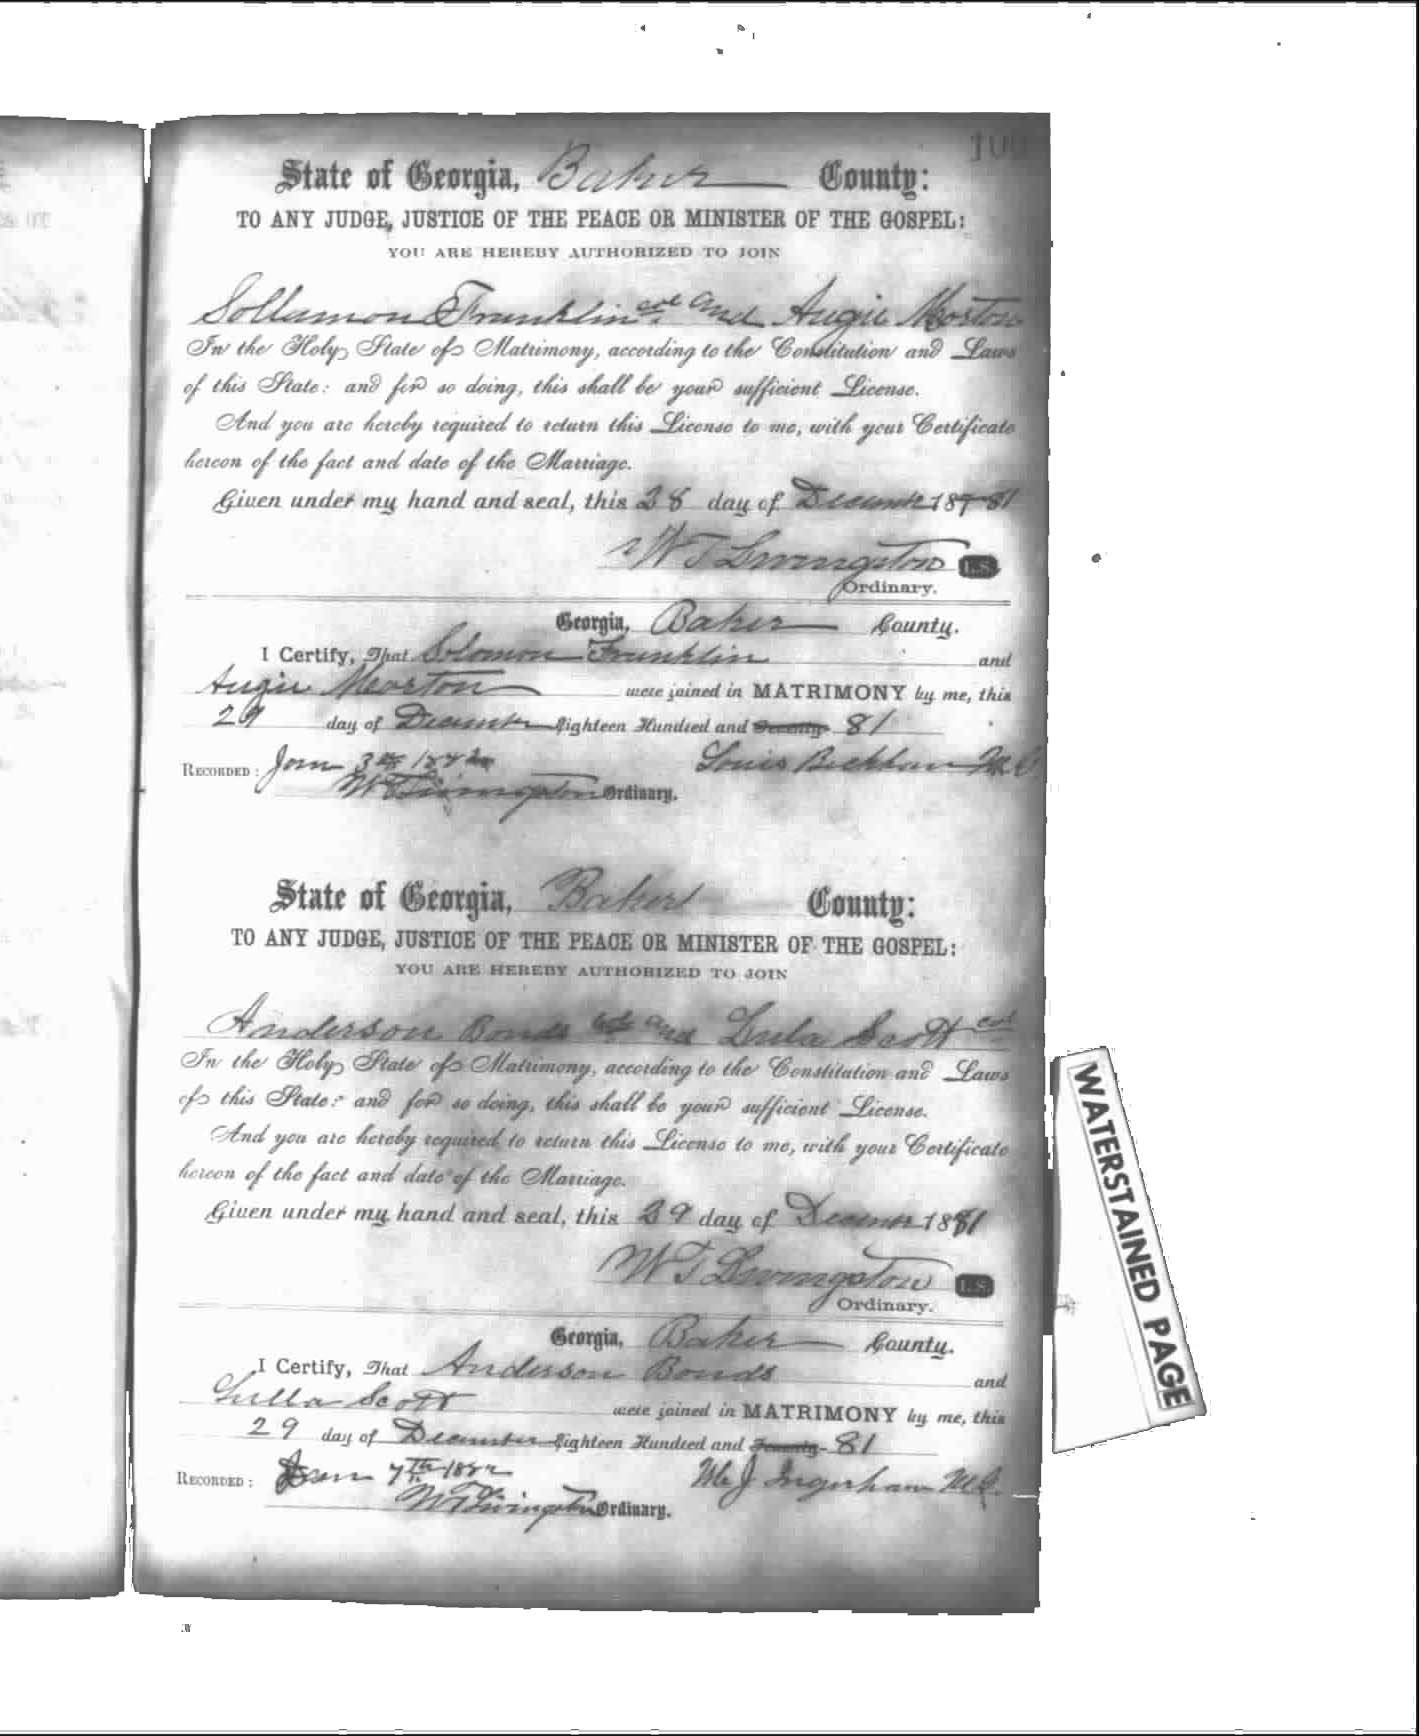 100
State of Georgia, Baker County:
TO ANY JUDGE, JUSTICE OF THE PEACE OR MINISTER OF THE GOSPEL:
YOU ARE HEREBY AUTHORIZED TO JOIN
Sollamon Franklin col and Augie Morton
In the Holy State of Matrimony, according to the Constitution and Laws
of this State: and for so doing, this shall be your sufficient License.
And you are hereby required to return this License to me, with your Certificate
hereon of the fact and date of the Marriage.
Given under my hand and seal, this 28 day of December 1881
W T Livingston L.S.
Ordinary.
Georgia, Baker County.
I Certify, That Solomon Franklin and
Augie Morton were joined in MATRIMONY by me, this
29 day of December Eighteen Hundred and Seventy 81
RECORDED: Jan 3rd 1882 Louis Beckham M.G
W T Livingston Ordinary.
State of Georgia, Baker County:
TO ANY JUDGE, JUSTICE OF THE PEACE OR MINISTER OF THE GOSPEL:
YOU ARE HEREBY AUTHORIZED TO JOIN
Anderson Bonds col and Lula Scott col
In the Holy State of Matrimony, according to the Constitution and Laws
of this State: and for so doing, this shall be your sufficient License.
And you are hereby required to return this License to me, with your Certificate
hereon of the fact and date of the Marriage.
Given under my hand and seal, this 29 day of December 1881
W T Livingston L.S.
Ordinary.
Georgia, Baker County.
I Certify, That Anderson Bonds and
Lulla Scott were joined in MATRIMONY by me, this
29 day of December Eighteen Hundred and Seventy 81
RECORDED: Jan 7th 1882 J Ingerham M.G.
W T Livingston Ordinary.
WATERSTAINED PAGE